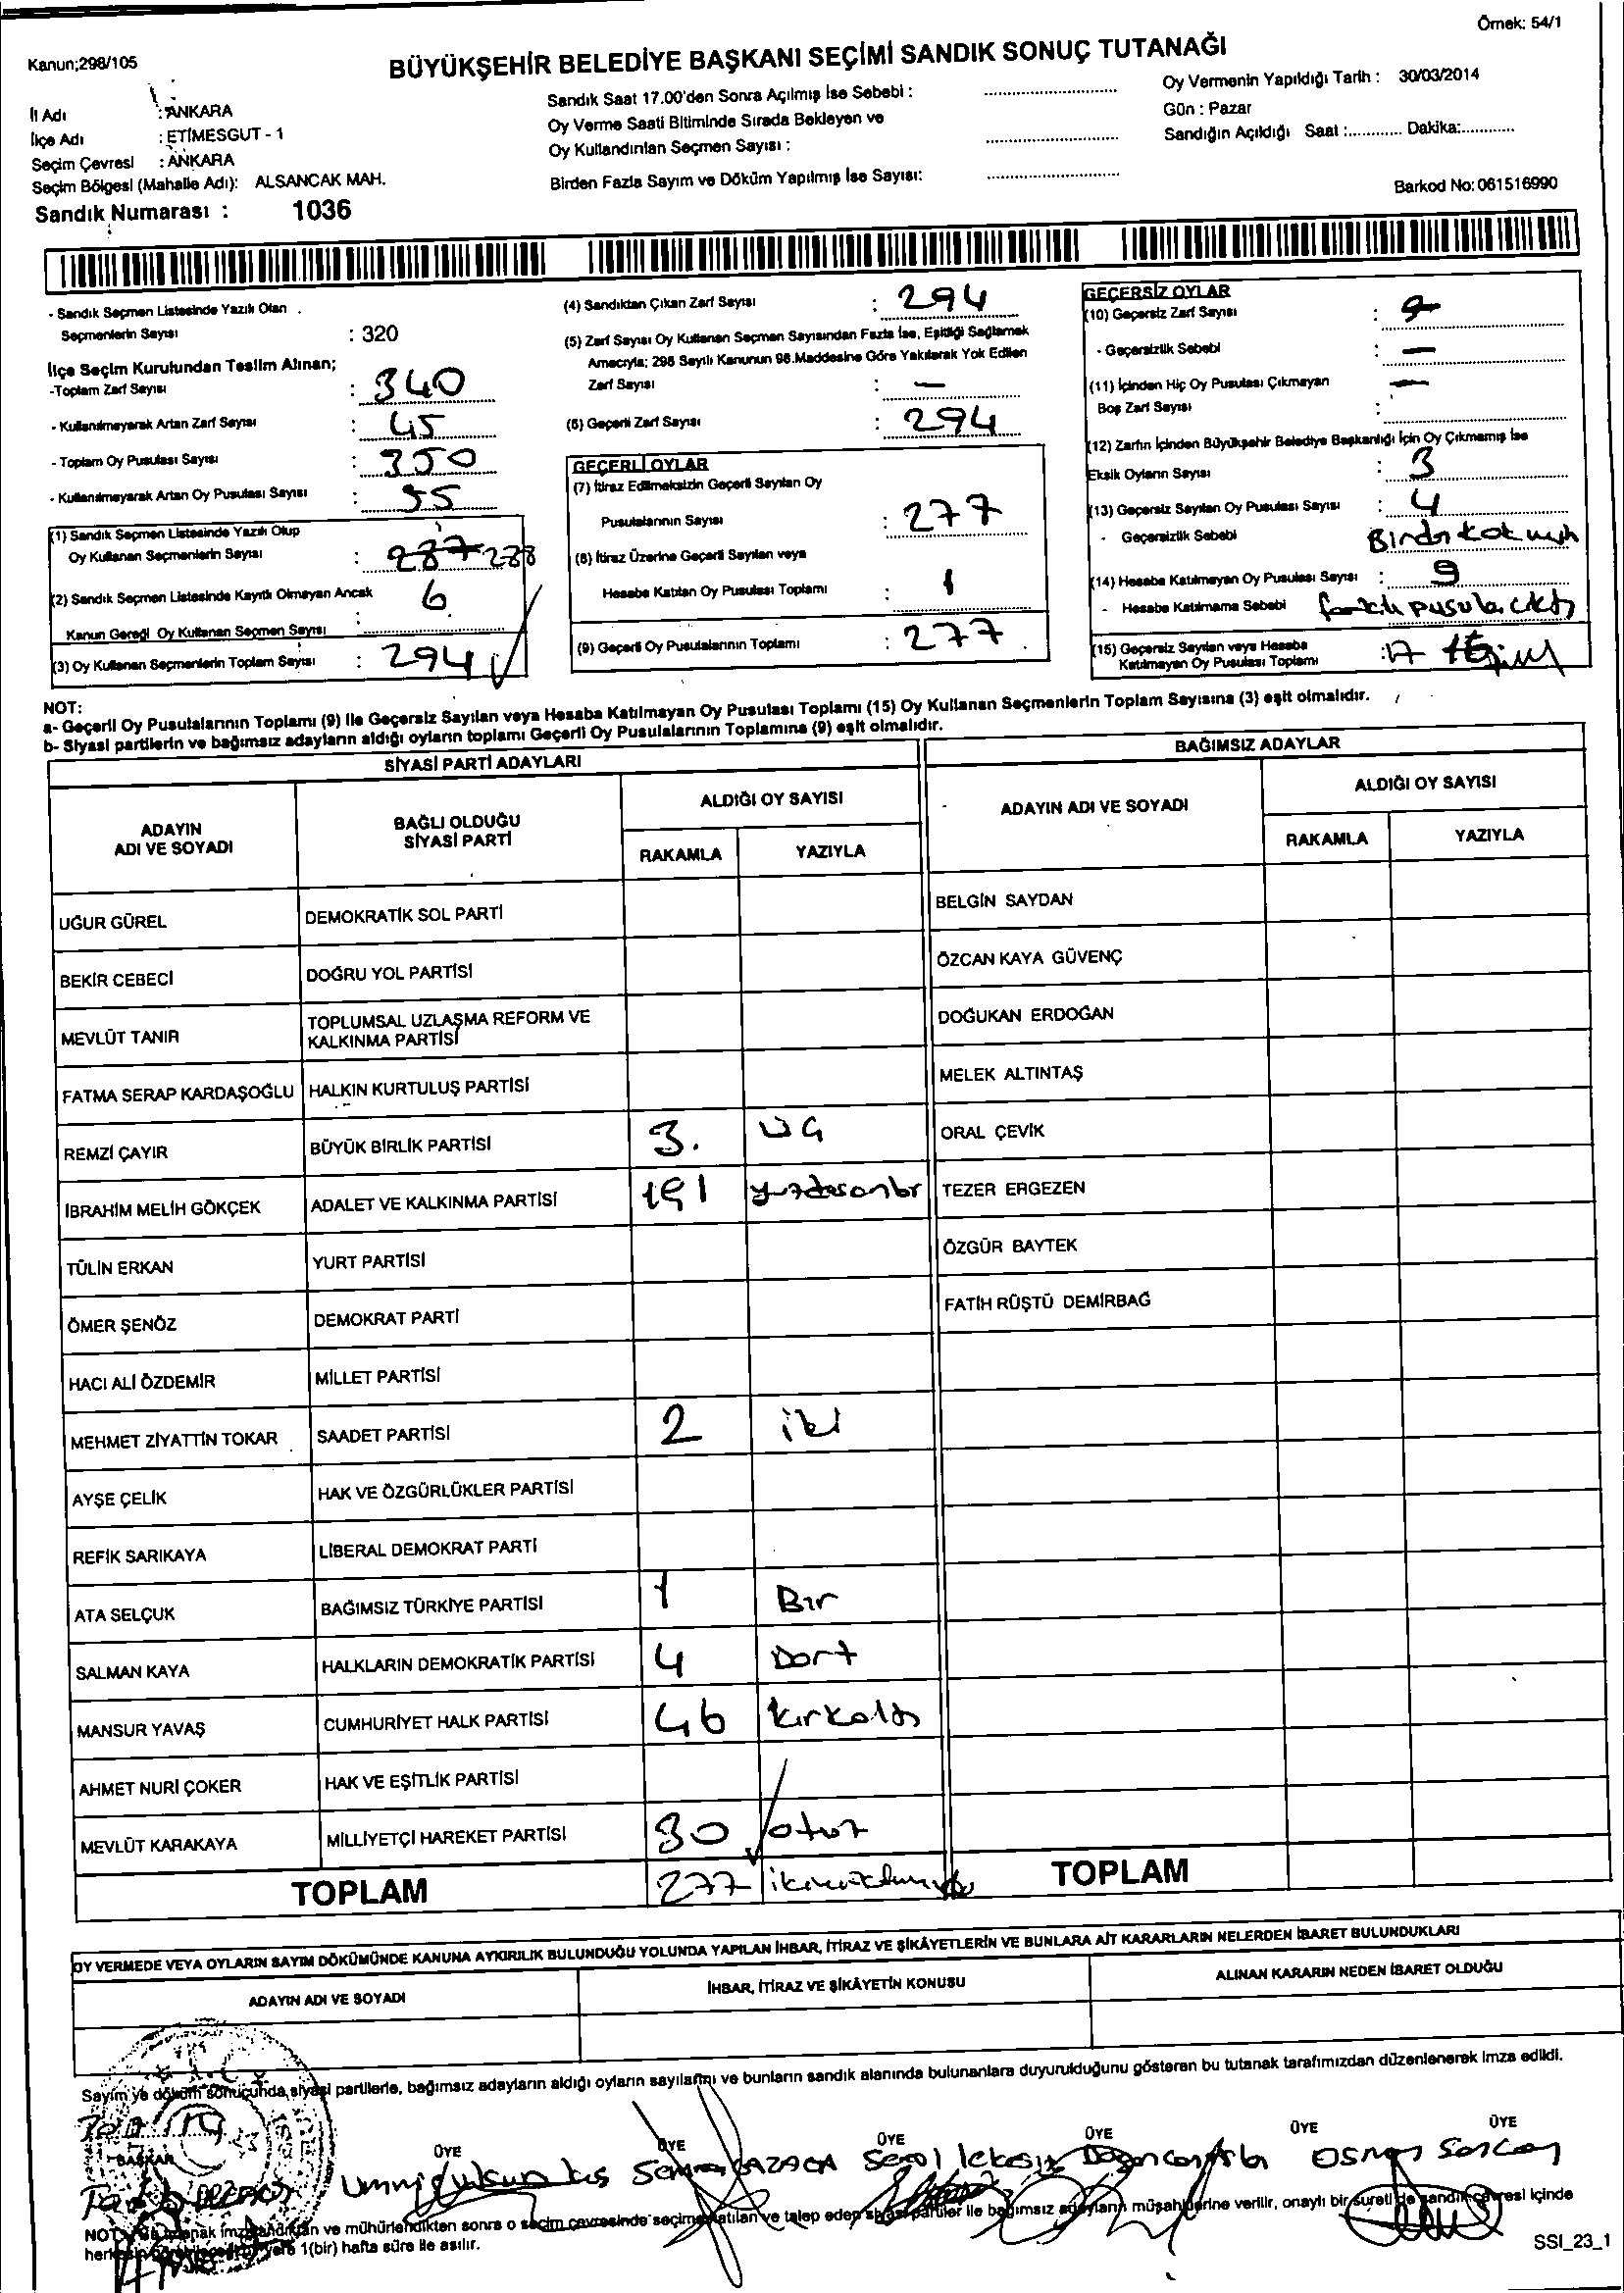 Örnek: 54/1
Kanun;298/105
BÜYÜKŞEHİR BELEDİYE BAŞKANI SEÇİMİ SANDIK SONUÇ TUTANAĞI
İl Adı : ANKARA
İlçe Adı : ETİMESGUT - 1
Seçim Çevresi : ANKARA
Seçim Bölgesi (Mahalle Adı): ALSANCAK MAH.
Sandık Numarası : 1036
Sandık Saat 17.00'den Sonra Açılmış İse Sebebi :
Oy Verme Saati Bitiminde Sırada Bekleyen ve
Oy Kullandırılan Seçmen Sayısı :
Birden Fazla Sayım ve Döküm Yapılmış İse Sayısı:
Oy Vermenin Yapıldığı Tarih : 30/03/2014
Gün : Pazar
Sandığın Açıldığı Saat :............ Dakika:............
Barkod No: 061516990
- Sandık Seçmen Listesinde Yazılı Olan
Seçmenlerin Sayısı : 320
İlçe Seçim Kurulundan Teslim Alınan;
-Toplam Zarf Sayısı : 340
- Kullanılmayarak Artan Zarf Sayısı : 45
- Toplam Oy Pusulası Sayısı : 350
- Kullanılmayarak Artan Oy Pusulası Sayısı : 55
(1) Sandık Seçmen Listesinde Yazılı Olup
Oy Kullanan Seçmenlerin Sayısı : 287 288
(2) Sandık Seçmen Listesinde Kayıtlı Olmayan Ancak
Kanun Gereği Oy Kullanan Seçmen Sayısı : 6
(3) Oy Kullanan Seçmenlerin Toplam Sayısı : 294
(4) Sandıktan Çıkan Zarf Sayısı : 294
(5) Zarf Sayısı Oy Kullanan Seçmen Sayısından Fazla İse, Eşitliği Sağlamak
Amacıyla; 298 Sayılı Kanunun 98.Maddesine Göre Yakılarak Yok Edilen
Zarf Sayısı : -
(6) Geçerli Zarf Sayısı : 294
GEÇERLİ OYLAR
(7) İtiraz Edilmeksizin Geçerli Sayılan Oy
Pusulalarının Sayısı : 277
(8) İtiraz Üzerine Geçerli Sayılan veya
Hesaba Katılan Oy Pusulası Toplamı : 1
(9) Geçerli Oy Pusulalarının Toplamı : 277
GEÇERSİZ OYLAR
(10) Geçersiz Zarf Sayısı :
- Geçersizlik Sebebi : -
(11) İçinden Hiç Oy Pusulası Çıkmayan
Boş Zarf Sayısı : -
(12) Zarfın İçinden Büyükşehir Belediye Başkanlığı İçin Oy Çıkmamış İse
Eksik Oyların Sayısı : 3
(13) Geçersiz Sayılan Oy Pusulası Sayısı : 4
- Geçersizlik Sebebi
(14) Hesaba Katılmayan Oy Pusulası Sayısı : 9
- Hesaba Katılmama Sebebi farklı pusula çıktı
(15) Geçersiz Sayılan veya Hesaba
Katılmayan Oy Pusulası Toplamı : 17
NOT:
a- Geçerli Oy Pusulalarının Toplamı (9) ile Geçersiz Sayılan veya Hesaba Katılmayan Oy Pusulası Toplamı (15) Oy Kullanan Seçmenlerin Toplam Sayısına (3) eşit olmalıdır.
b- Siyasi partilerin ve bağımsız adayların aldığı oyların toplamı Geçerli Oy Pusulalarının Toplamına (9) eşit olmalıdır.
SİYASİ PARTİ ADAYLARI
BAĞIMSIZ ADAYLAR
ADAYIN ADI VE SOYADI
BAĞLI OLDUĞU SİYASİ PARTİ
ALDIĞI OY SAYISI
RAKAMLA YAZIYLA
ADAYIN ADI VE SOYADI
ALDIĞI OY SAYISI
RAKAMLA YAZIYLA
UĞUR GÜREL DEMOKRATİK SOL PARTİ
BEKİR CEBECİ DOĞRU YOL PARTİSİ
MEVLÜT TANIR TOPLUMSAL UZLAŞMA REFORM VE KALKINMA PARTİSİ
FATMA SERAP KARDAŞOĞLU HALKIN KURTULUŞ PARTİSİ
REMZİ ÇAYIR BÜYÜK BİRLİK PARTİSİ 3. üç
İBRAHİM MELİH GÖKÇEK ADALET VE KALKINMA PARTİSİ 191 yüzdoksanbir
TÜLİN ERKAN YURT PARTİSİ
ÖMER ŞENÖZ DEMOKRAT PARTİ
HACI ALİ ÖZDEMİR MİLLET PARTİSİ
MEHMET ZİYATTİN TOKAR SAADET PARTİSİ 2 iki
AYŞE ÇELİK HAK VE ÖZGÜRLÜKLER PARTİSİ
REFİK SARIKAYA LİBERAL DEMOKRAT PARTİ
ATA SELÇUK BAĞIMSIZ TÜRKİYE PARTİSİ 1 Bir
SALMAN KAYA HALKLARIN DEMOKRATİK PARTİSİ 4 Dört
MANSUR YAVAŞ CUMHURİYET HALK PARTİSİ 46 kırkaltı
AHMET NURİ ÇOKER HAK VE EŞİTLİK PARTİSİ
MEVLÜT KARAKAYA MİLLİYETÇİ HAREKET PARTİSİ 30 otuz
TOPLAM 277
BELGİN SAYDAN
ÖZCAN KAYA GÜVENÇ
DOĞUKAN ERDOĞAN
MELEK ALTINTAŞ
ORAL ÇEVİK
TEZER ERGEZEN
ÖZGÜR BAYTEK
FATİH RÜŞTÜ DEMİRBAĞ
TOPLAM
OY VERMEDE VEYA OYLARIN SAYIM DÖKÜMÜNDE KANUNA AYKIRILIK BULUNDUĞU YOLUNDA YAPILAN İHBAR, İTİRAZ VE ŞİKÂYETLERİN VE BUNLARA AİT KARARLARIN NELERDEN İBARET BULUNDUKLARI
ADAYIN ADI VE SOYADI
İHBAR, İTİRAZ VE ŞİKÂYETİN KONUSU
ALINAN KARARIN NEDEN İBARET OLDUĞU
Sayım ve döküm sonucunda, siyasi partilerle, bağımsız adayların aldığı oyların sayılarını ve bunların sandık alanında bulunanlara duyurulduğunu gösteren bu tutanak tarafımızdan düzenlenerek imza edildi.
BAŞKAN ÜYE ÜYE ÜYE ÜYE ÜYE ÜYE
Osman
NOT: Bu tutanak imzalandıktan ve mühürlendikten sonra o seçim çevresinde seçime katılan ve talep eden siyasi partiler ile bağımsız adayların müşahitlerine verilir, onaylı bir sureti de sandık çevresi içinde
herkesin görebileceği bir yere 1(bir) hafta süre ile asılır.
SSI_23_1